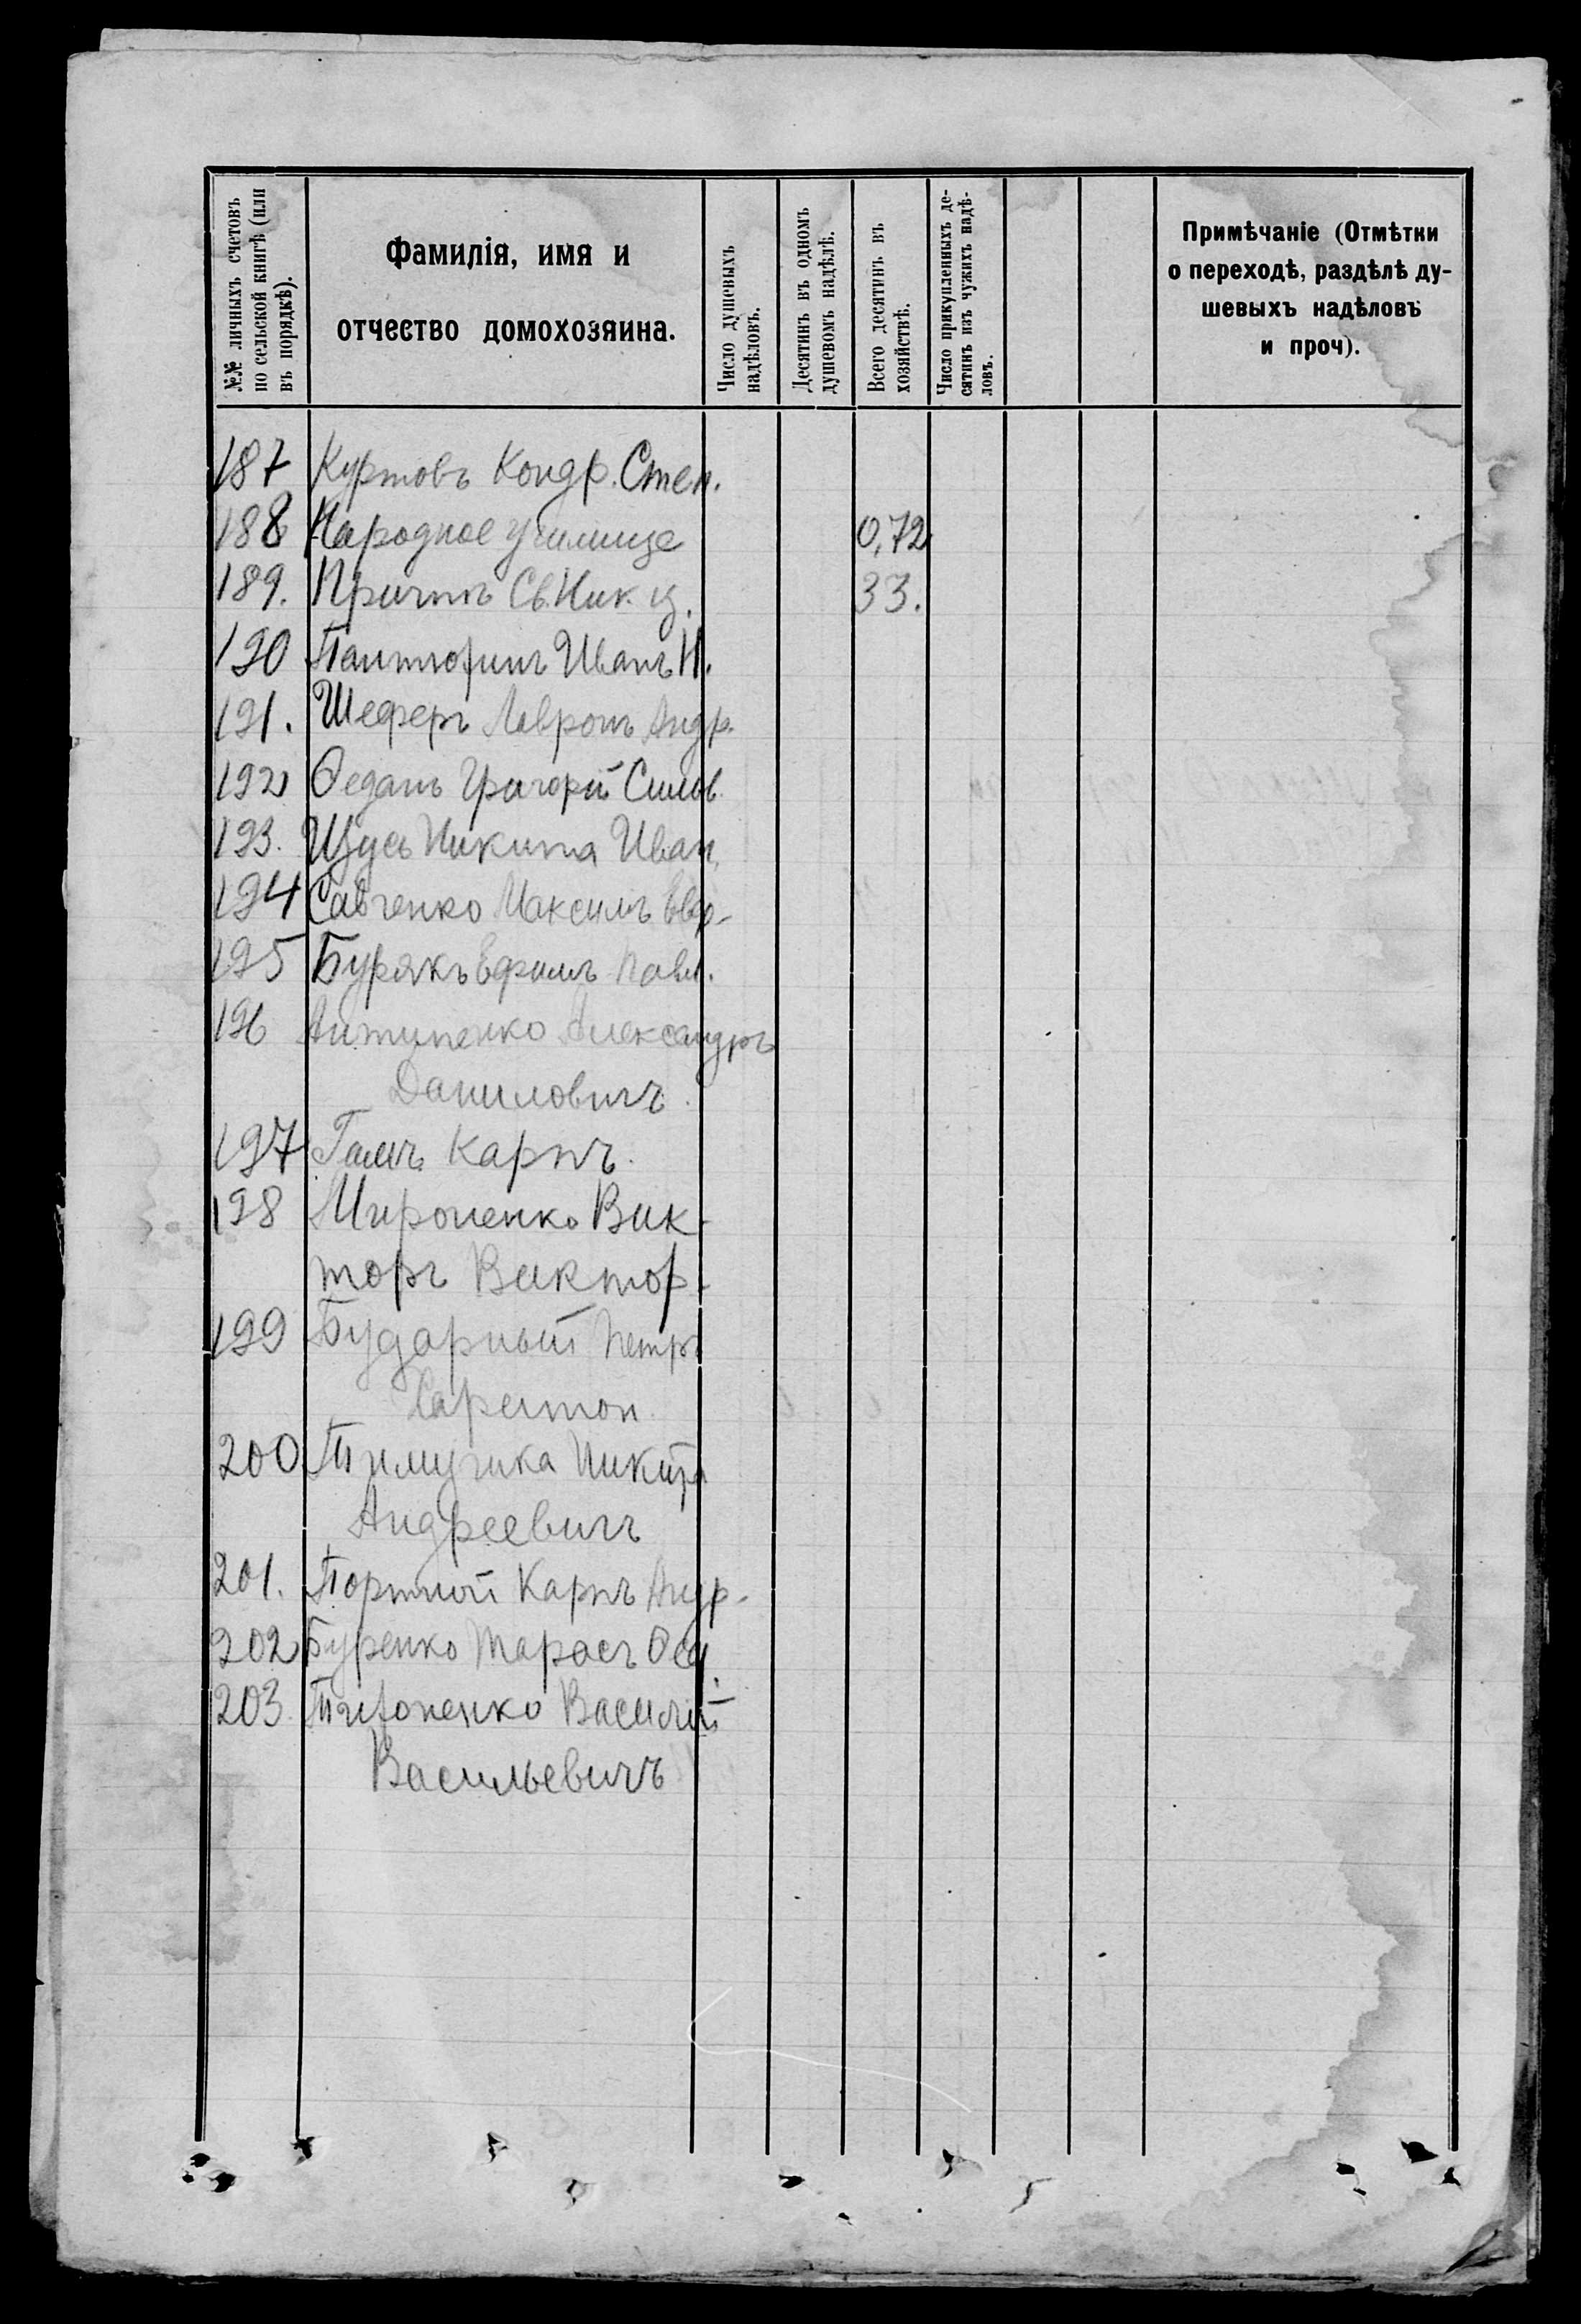 №№ личныхъ счетовъ
по сельской книгѣ (или
въ порядкѣ).
Фамилія, имя и
отчество домохозяина.
Число душевыхъ
надѣловъ.
Десятинъ въ одномъ
душевомъ надѣлѣ.
Всего десятинъ въ
хозяйствѣ.
Число прикупленныхъ де-
сятинъ изъ чужихъ надѣ-
ловъ.
Примѣчаніе (Отмѣтки
о переходѣ, раздѣлѣ ду-
шевыхъ надѣловъ
и проч).
187 Куртовъ Кондр. Степ.
188 Народное училище 0,72
189. Причтъ Св. Ник. ц. 33.
190 Пантюфинъ Иванъ И.
191. Шеферъ Лавронъ Андр.
192 Ѳеданъ Григорій Силов.
193. Щусь Никита Иван.
194 Савченко Максимъ
195 Бурякъ Ефимъ Павл.
196 Антипенко Александръ
Даниловичъ.
197 Гамъ Карпъ.
198 Мироненко Вик-
торъ Виктор.
199 Бударный Петръ
Харитон.
200 Никита
Андреевичъ
201. Портной Карпъ Андр.
202 Буренко Тарасъ
203. Тихоненко Василій
Васильевичъ